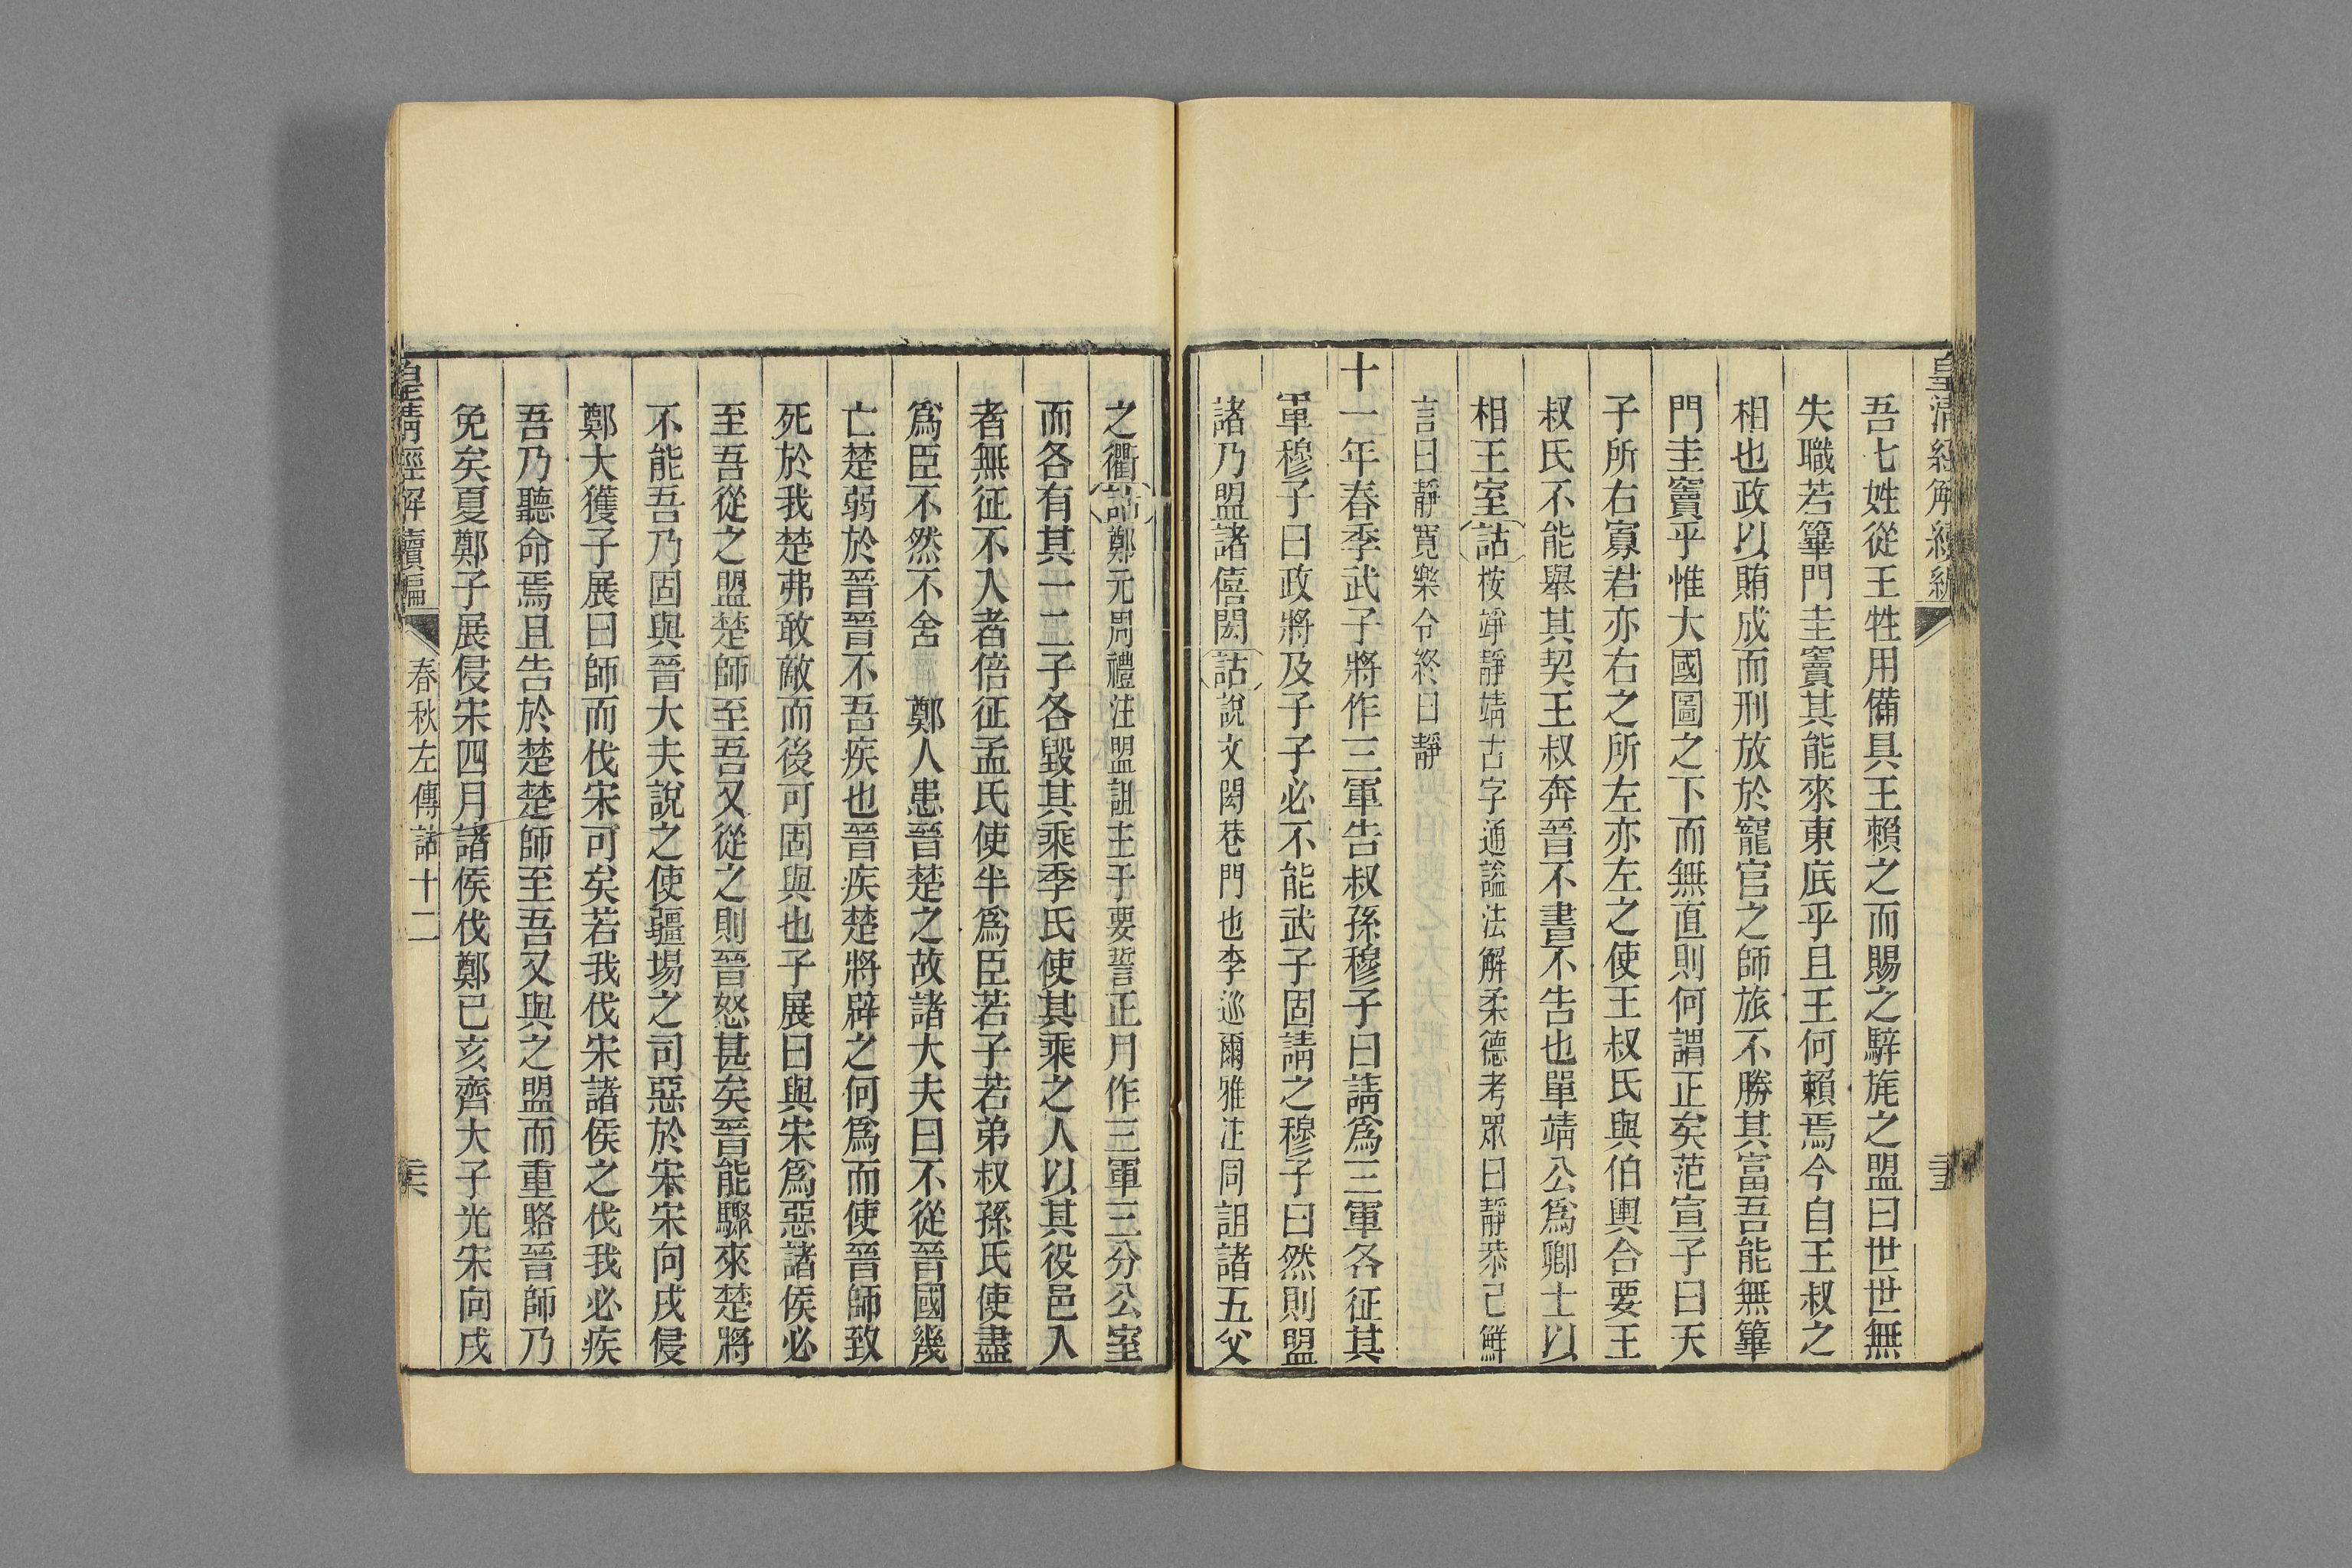 皇清經解續編
吾七姓從王牲用備具王賴之而賜之騂旄之盟曰世世無
失職若篳門圭竇其能來東底乎且王何賴焉今自王叔之
相也政以賄成而刑放於寵官之師旅不勝其富吾能無篳
門圭竇乎惟大國圖之下而無直則何謂正矣范宣子曰天
子所右寡君亦右之所左亦左之使王叔氏與伯輿合要王
叔氏不能舉其契王叔奔晉不書不告也單靖公爲卿士以
相王室詁桉竫靜靖古字通謚法解柔德考眾曰靜恭己鮮
言曰靜寛樂令終曰靜
十一年春季武子將作三軍告叔孫穆子曰請爲三軍各征其
軍穆子曰政將及子子必不能武子固請之穆子曰然則盟
諸乃盟諸僖閎詁說文閎巷門也李巡爾雅注同詛諸五父
之衢詁鄭元周禮注盟詛主于要誓正月作三軍三分公室
而各有其一二子各毀其乘季氏使其乘之人以其役邑入
者無征不入者倍征孟氏使半爲臣若子若弟叔孫氏使盡
爲臣不然不舍 鄭人患晉楚之故諸大夫曰不從晉國幾
亡楚弱於晉晉不吾疾也晉疾楚將辟之何爲而使晉師致
死於我楚弗敢敵而後可固與也子展曰與宋爲惡諸侯必
至吾從之盟楚師至吾又從之則晉怒甚矣晉能驟來楚將
不能吾乃固與晉大夫說之使疆埸之司惡於宋宋向戌侵
鄭大獲子展曰師而伐宋可矣若我伐宋諸侯之伐我必疾
吾乃聽命焉且告於楚楚師至吾又與之盟而重賂晉師乃
免矣夏鄭子展侵宋四月諸侯伐鄭己亥齊大子光宋向戌
皇清經解續編 春秋左傳詁十二